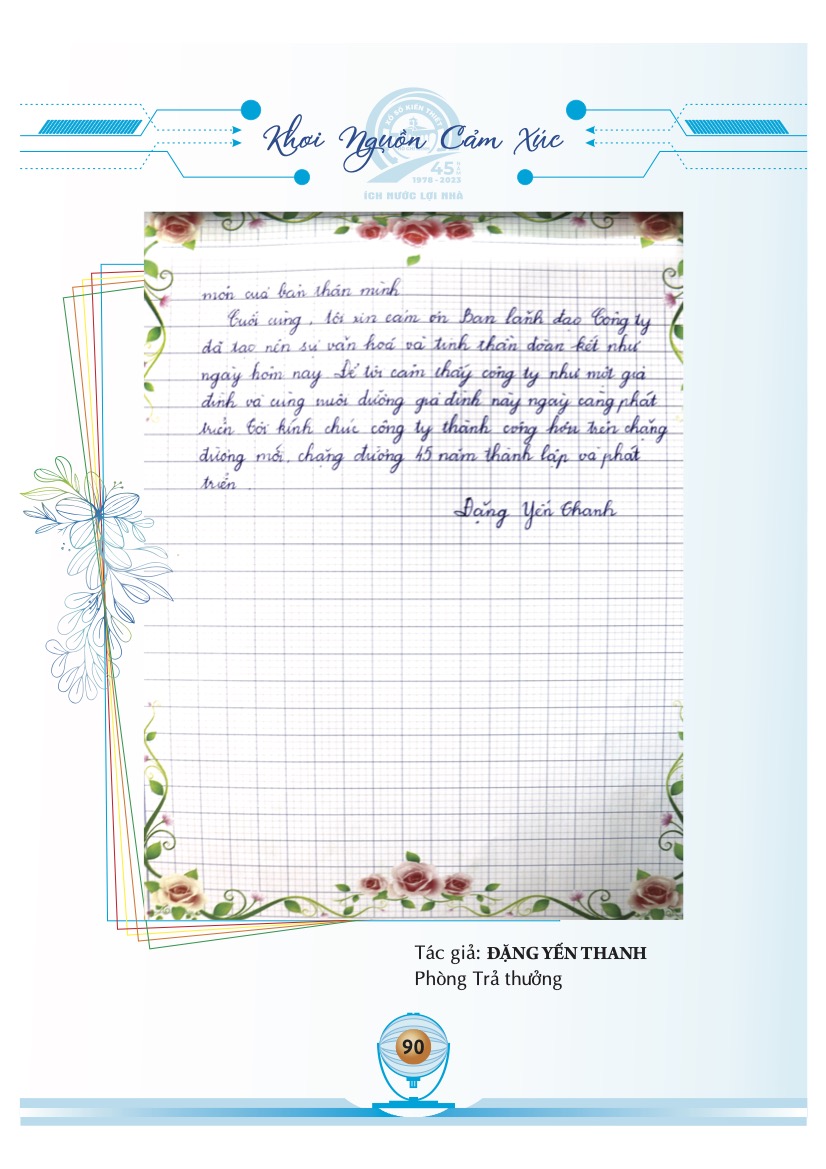 XỔ SỐ KIẾN THIẾT
Khơi Nguồn Cảm Xúc
45 NĂM
1978 - 2023
ÍCH NƯỚC LỢI NHÀ
môn của bản thân mình
Cuối cùng, tôi xin cảm ơn Ban lãnh đạo Công ty
đã tạo nên sự văn hoá và tinh thần đoàn kết như
ngày hôm nay Để tôi cảm thấy công ty như một gia
đình và cùng nuôi dưỡng gia đình này ngày càng phát
triển Tôi kính chúc công ty thành công hơn trên chặng
đường mới, chặng đường 45 năm thành lập và phát
triển.
Đặng Yến Thanh
Tác giả: ĐẶNG YẾN THANH
Phòng Trả thưởng
90